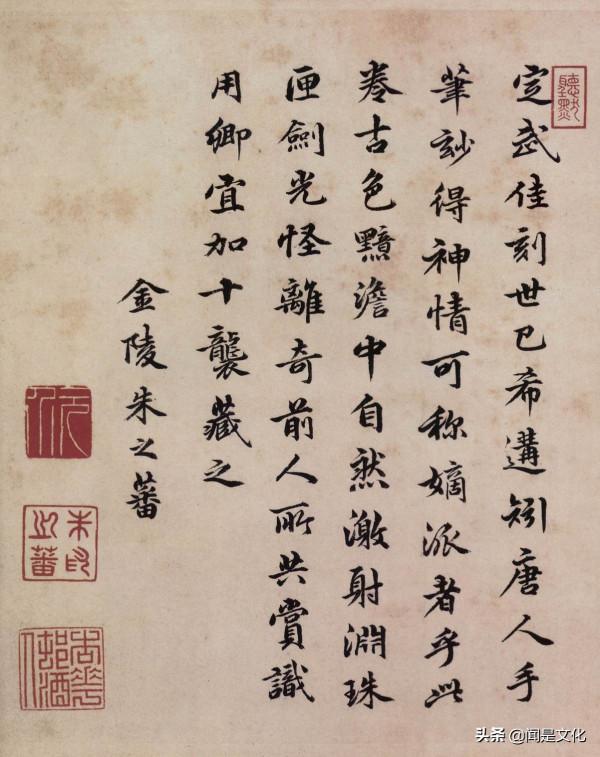 定武佳刻世已希遘矧唐人手
筆妙得神情可称嫡派者乎此
卷古色黯澹中自然激射淵珠
匣劍光怪離奇前人所共賞識
用卿宜加十襲藏之
金陵朱之蕃
朱印之蕃
头条 @闻是文化